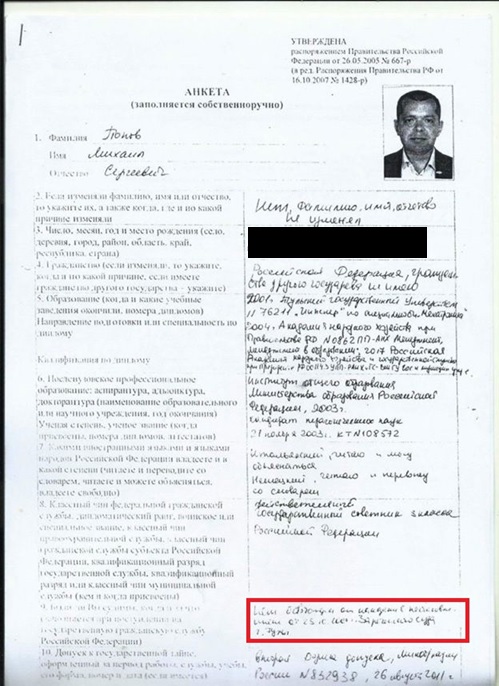 1
УТВЕРЖДЕНА
распоряжением Правительства Российской
Федерации от 26.05.2005 № 667-р
(в ред. Распоряжения Правительства РФ от
16.10.2007 № 1428-р)
АНКЕТА
(заполняется собственноручно)
1. Фамилия Попов
Имя Михаил
Отчество Сергеевич
2. Если изменяли фамилию, имя или отчество,
то укажите их, а также когда, где и по какой
причине изменяли
Нет, фамилию, имя, отчество
не изменял
3. Число, месяц, год и место рождения (село,
деревня, город, район, область, край,
республика, страна)
4. Гражданство (если изменяли, то укажите,
когда и по какой причине, если имеете
гражданство другого государства – укажите)
Российская Федерация,
другого государства не имею
5. Образование (когда и какие учебные
заведения окончили, номера дипломов)
Направление подготовки или специальность по
диплому
Квалификация по диплому
2001, Тульский государственный Университет
по специальности
2004, Академия народного хозяйства при
Правительстве РФ
2017 Российская
Академия народного хозяйства и государственной службы
6. Послевузовское профессиональное
образование: аспирантура, адъюнктура,
докторантура (наименование образовательного
или научного учреждения, год окончания)
Ученая степень, ученое звание (когда
присвоены, номера дипломов, аттестатов)
Институт общего образования
Министерства образования Российской
Федерации, 2003г.
кандидат педагогических наук
21 ноября 2003г. КТ №108572
7. Какими иностранными языками и языками
народов Российской Федерации владеете и в
какой степени (читаете и переводите со
словарем, читаете и можете объясняться,
владеете свободно)
Итальянский, читаю и могу
объясняться
Немецкий, читаю и перевожу
со словарем
8. Классный чин федеральной гражданской
службы, дипломатический ранг, воинское или
специальное звание, классный чин
правоохранительной службы, классный чин
гражданской службы субъекта Российской
Федерации, квалификационный разряд
государственной службы, квалификационный
разряд или классный чин муниципальной
службы (кем и когда присвоены)
Действительный
государственный советник 3 класса
Российской Федерации
9. Были ли Вы судимы, когда и за что
государственную гражданскую службу
Российской Федерации)
Нет
г. Тулы
10. Допуск к государственной тайне,
оформленный за период работы, службы, учебы,
его форма, номер и дата (если имеется)
Вторая форма допуска,
России №832938, 26 августа 2011г.